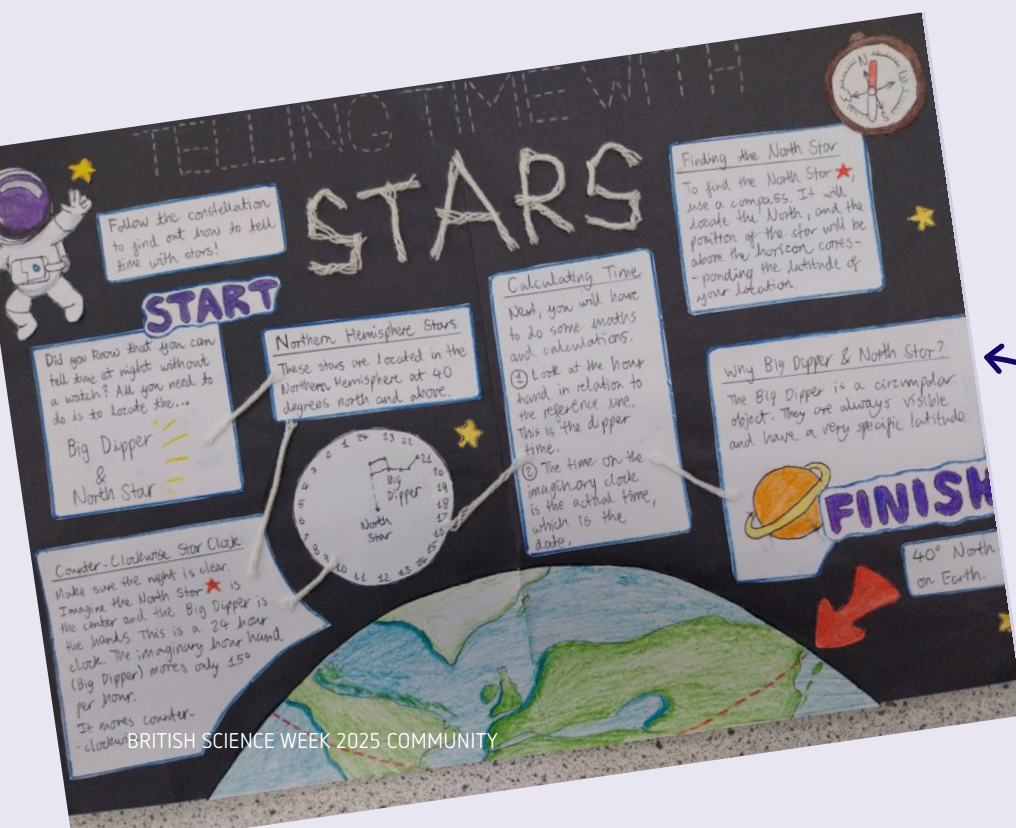 TELLING TIME WITH
STARS
N
E
S
Follow the constellation
to find out how to tell
time with stars!
START
Did you know that you can
tell time at night without
a watch? All you need to
do is to locate the...
Big Dipper
&
North Star
Northern Hemisphere Stars
These stars are located in the
Northern Hemisphere at 40
degrees north and above.
Counter-Clockwise Star Clock
Make sure the night is clear.
Imagine the North Star is
the center and the Big Dipper is
the hands. This is a 24 hour
clock. The imaginary hour hand
(Big Dipper) moves only 15°
per hour.
It moves counter-
-clockwise
1 24 23 22 21 20 19 18 17 16 15 14 13 12 11 10 9 8 7 6 5 4 3 2
Big
Dipper
North
Star
Calculating Time
Next, you will have
to do some maths
and calculations.
1 Look at the hour
hand in relation to
the reference line.
This is the dipper
time.
2 The time on the
imaginary clock
is the actual time,
which is the
date.
Finding the North Star
To find the North Star,
use a compass. It will
locate the North, and the
position of the star will be
above the horizon corres-
-ponding the latitude of
your location.
Why Big Dipper & North Star?
The Big Dipper is a circumpolar
object. They are always visible
and have a very specific latitude.
FINISH
40° North
on Earth.
BRITISH SCIENCE WEEK 2025 COMMUNITY